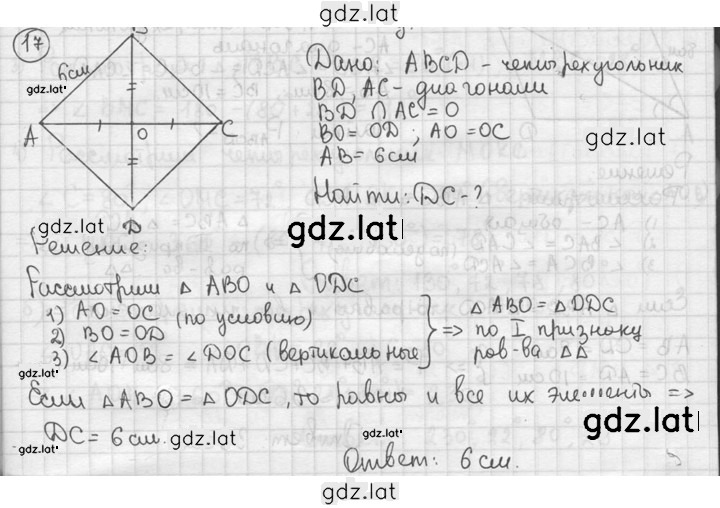 gdz.lat
17
B
6см
gdz.lat
A
O
C
D
Дано: ABCD - четырехугольник
BD, AC - диагонали
BD ∩ AC = O
BO = OD ; AO = OC
AB = 6 см
gdz.lat
Найти: DC - ?
gdz.lat
gdz.lat
Решение:
Рассмотрим △ ABO и △ ODC
1) AO = OC (по условию)
2) BO = OD
3) ∠AOB = ∠DOC (вертикальные)
} => △ ABO = △ ODC
по I признаку
рав-ва △△
gdz.lat
Если △ABO = △ODC, то равны и все их элементы =>
DC = 6 см.
gdz.lat
gdz.lat
gdz.lat
Ответ: 6 см.
gdz.lat